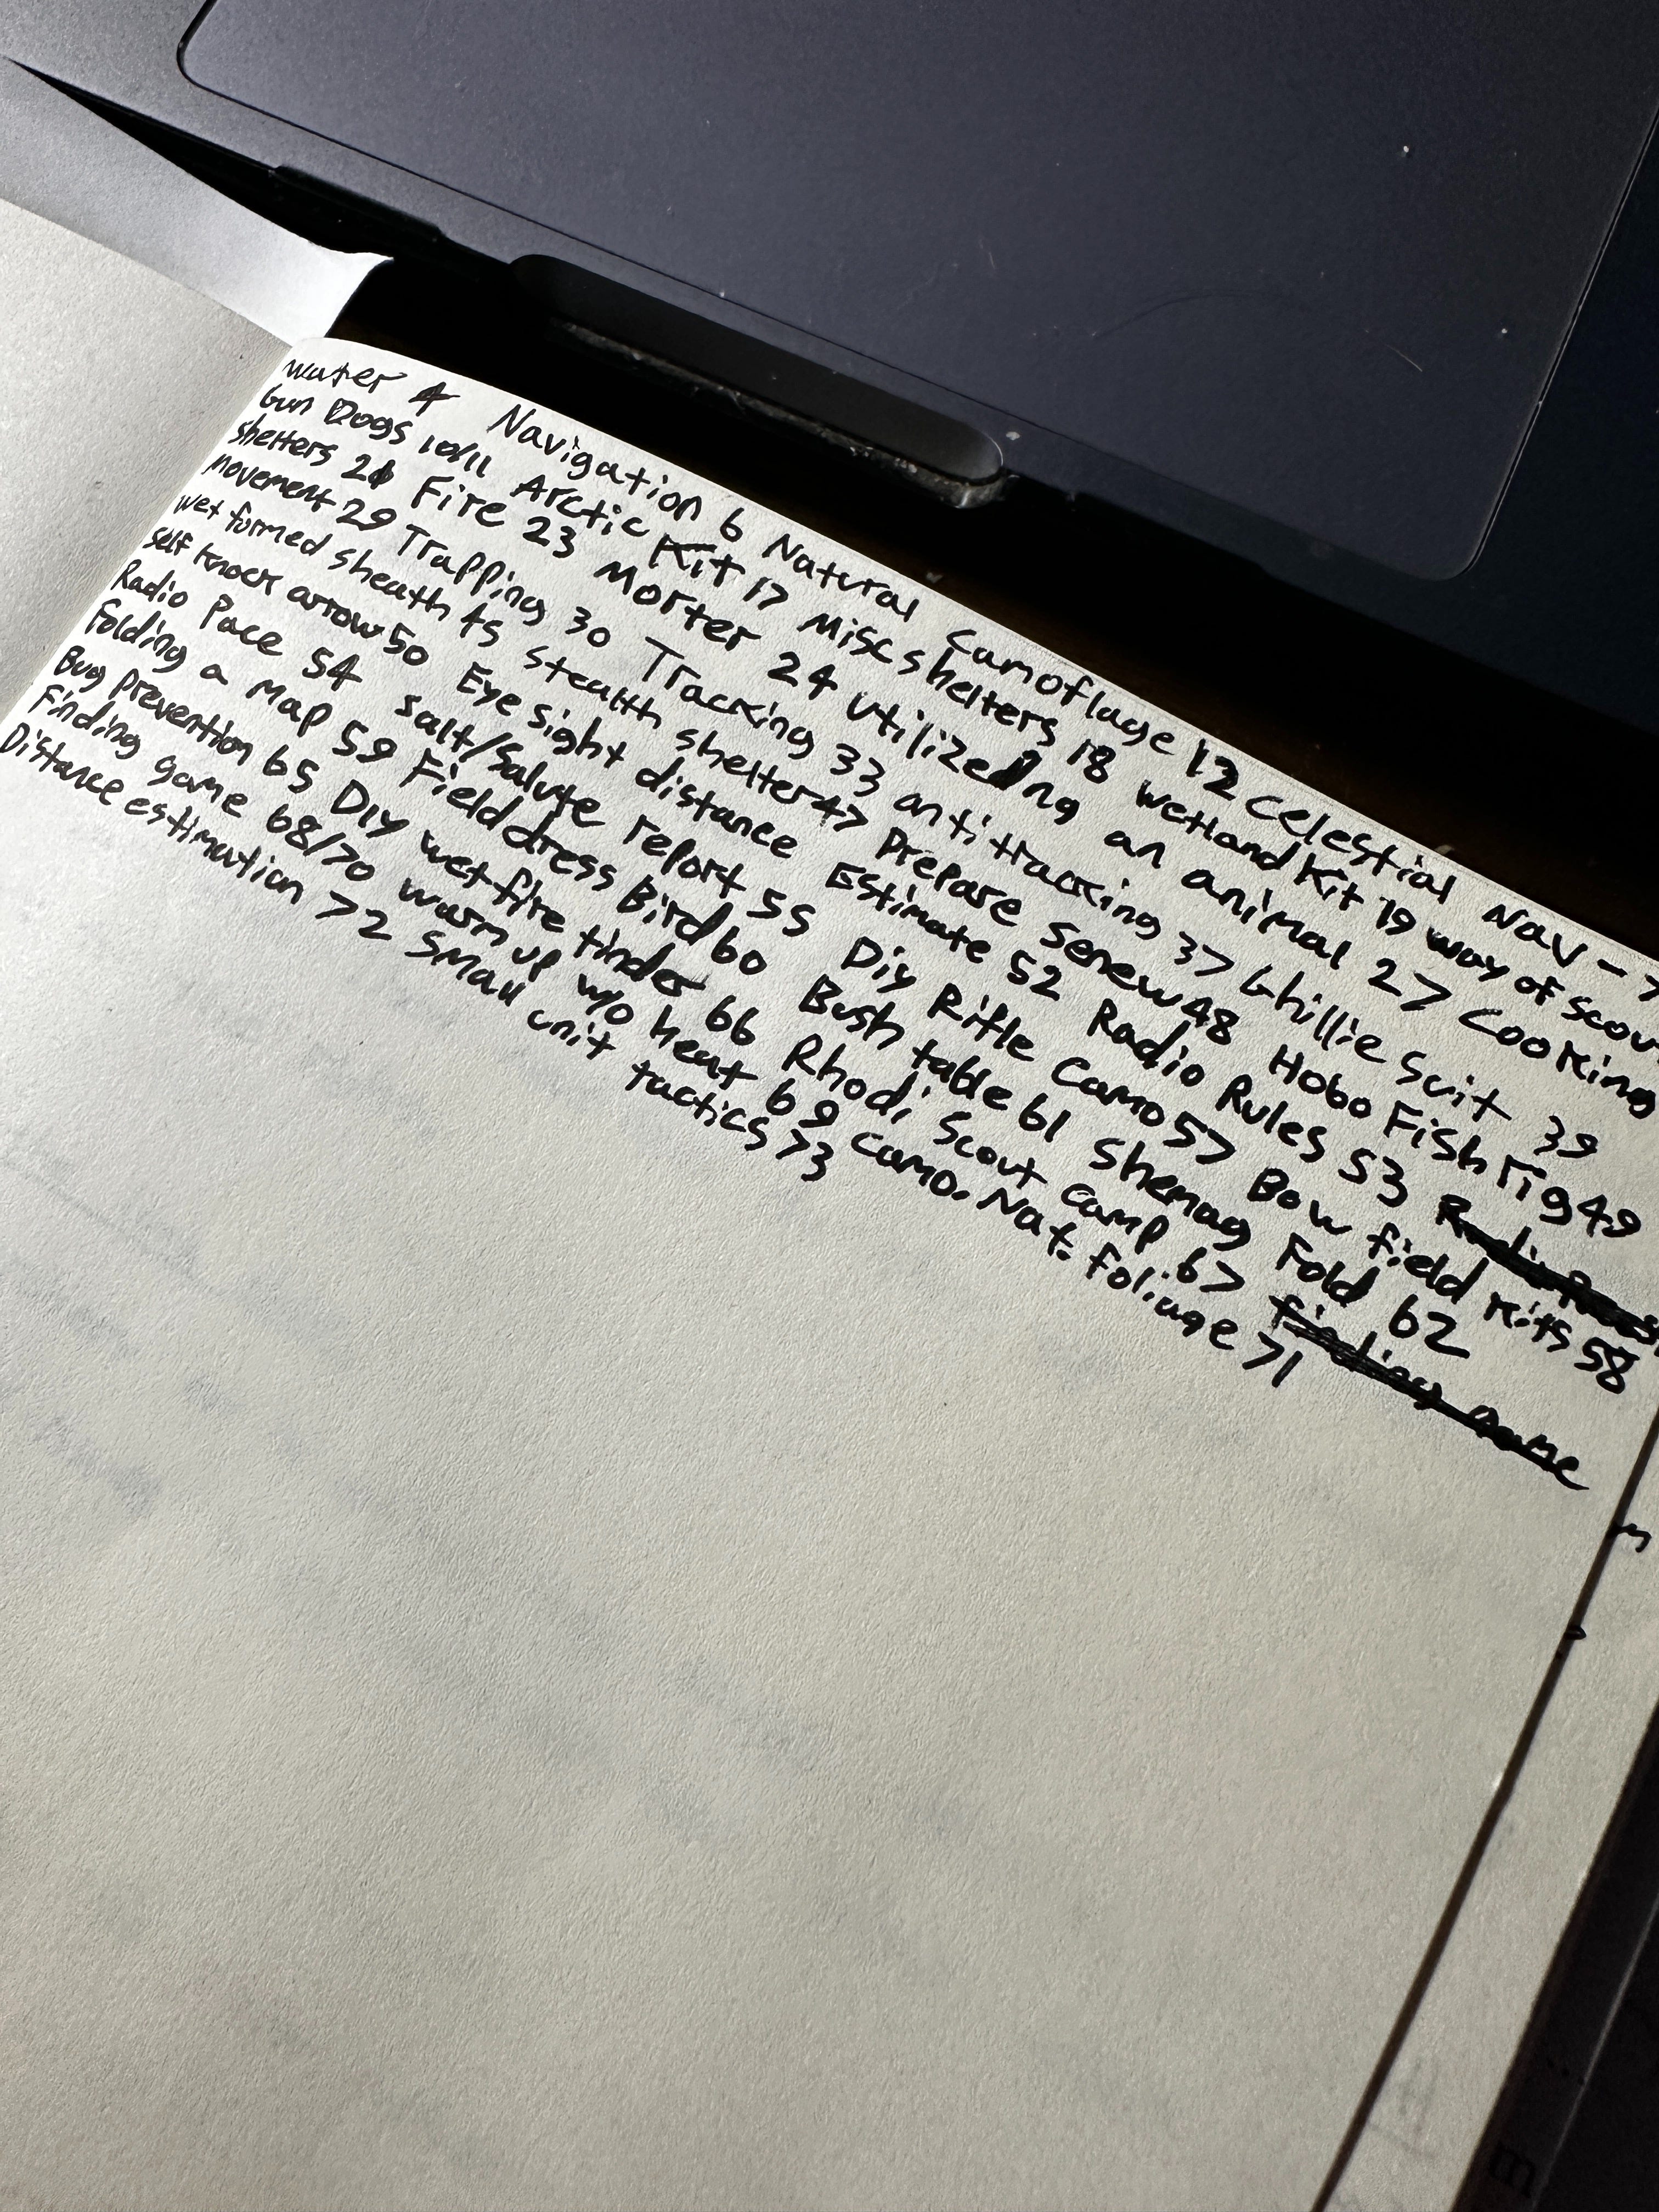 water 4 Navigation 6 Natural Camoflage 12 Celestial Nav - 7
Gun Dogs 10/11 Arctic Kit 17 Misc shelters 18 wetland Kit 19 way of scout
shelters 21 Fire 23 Morter 24 Utilizeing an animal 27 Cooking
movement 29 Trapping 30 Tracking 33 antitracking 37 Ghillie suit 39
wet formed sheath 45 stealth shelter 47 Prepare Senew 48 Hobo Fish rig 49
self knock arrow 50 Eye sight distance Estimate 52 Radio Rules 53
Radio Pace 54 salt/Salute report 55 Diy Rifle Camo 57 Bow field kits 58
Folding a Map 59 Field dress Bird 60 Bush table 61 Shemag Fold 62
Bug prevention 65 Diy wet fire tinder 66 Rhodi Scout Camp 67 finding game
Finding game 68/70 warm up w/o heat 69 Camo. Nat. foliage 71
Distance estimation 72 Small unit tactics 73
m